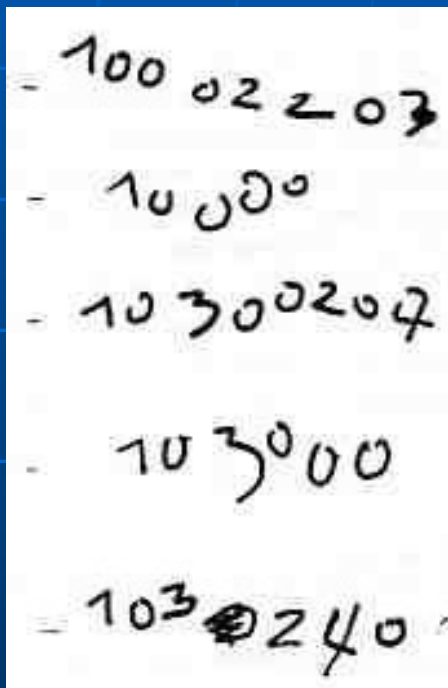 - 100 02203
- 10000
- 10300204
- 103000
- 1030240